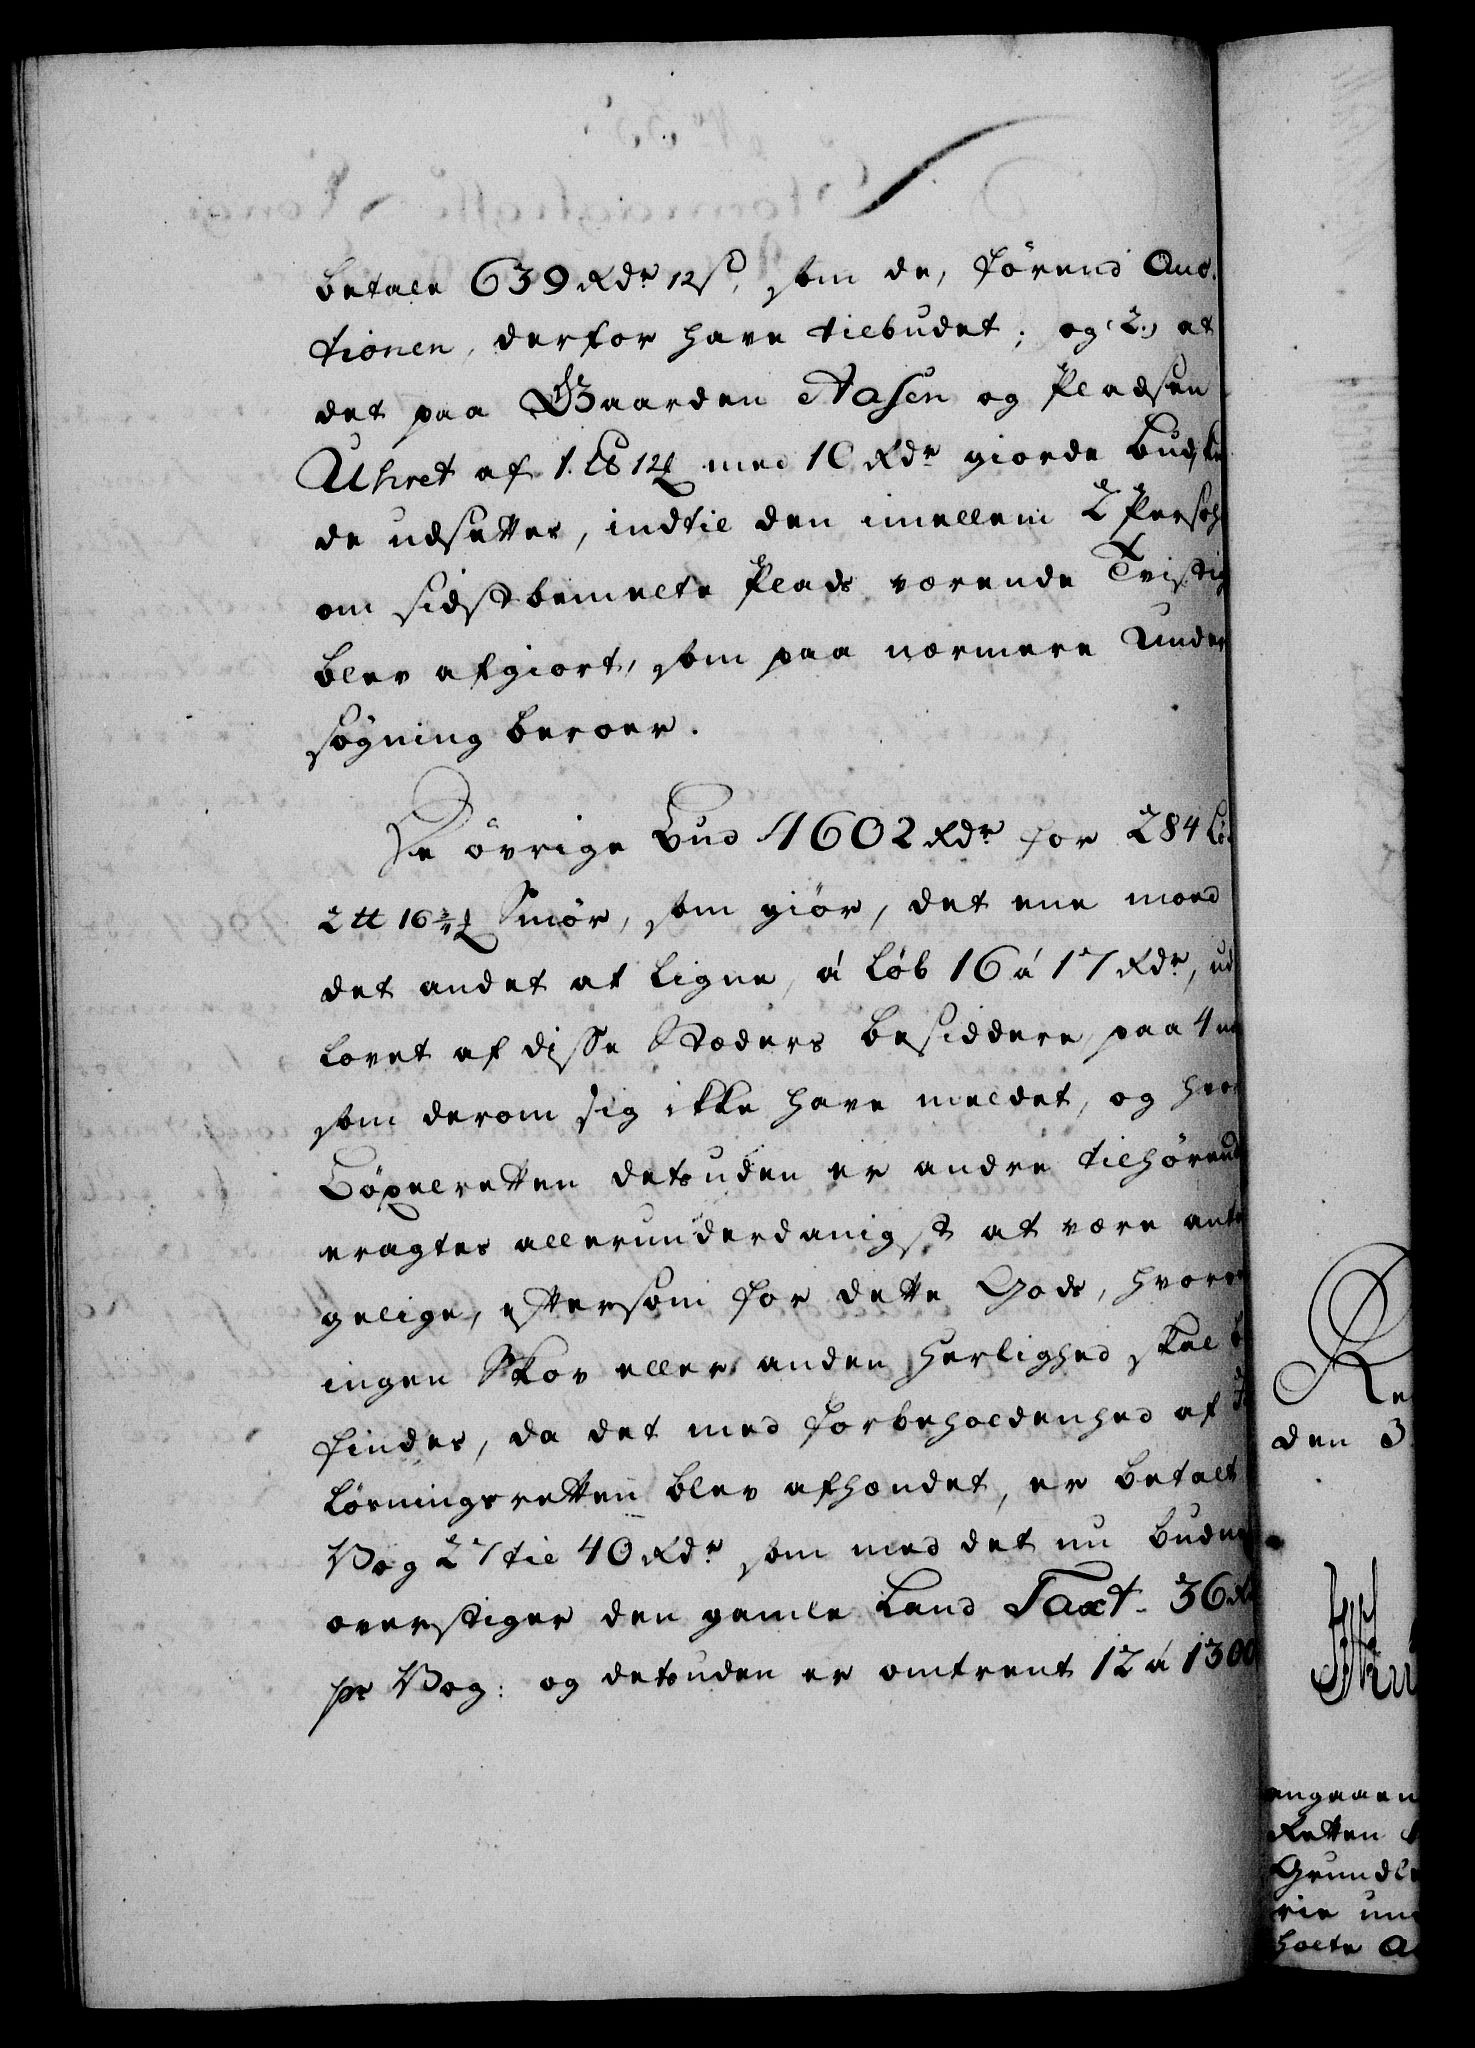 betale 639 Rdr 12 s, som de, förend Auc-
tionen, derfor have tilbudet; og 2.) at
det paa Gaarden Aasen og Pladsen
Uhret af 1. med 10 Rdr giorde Bud,
de udsættes, indtil den imellem 2 Persoh
om sidstbemelte Plads værende Tvistig
blev afgiort, som paa nærmere Under
søgning beroer.
De övrige Bud 4602 Rdr for 284 Lö
2 tt 16 3/4 Smör, som giör, det ene med
det andet at ligne, á Löb 16 á 17 Rdr, ud
lovet af disse Gooders besiddere paa 4
som derom sig ikke have meldet, og hvor
Böxelretten desuden er andre tilhörende
eragtes allerunderdanigst at være anta
gelige, eftersom for dette Gods, hvor
ingen Skov eller anden herlighed skal b
findes, da det med forbeholdenhed af
lösningsretten blev afhændet, er betalt
Vog 27 til 40 Rdr som med det nu budne
overstiger den gamle Land Taxt - 36 Rd
pr Vog: og desuden er omtrent 12 á 1300
Re
den 3
angaaen
Retten
Grundle
rie un
holte A